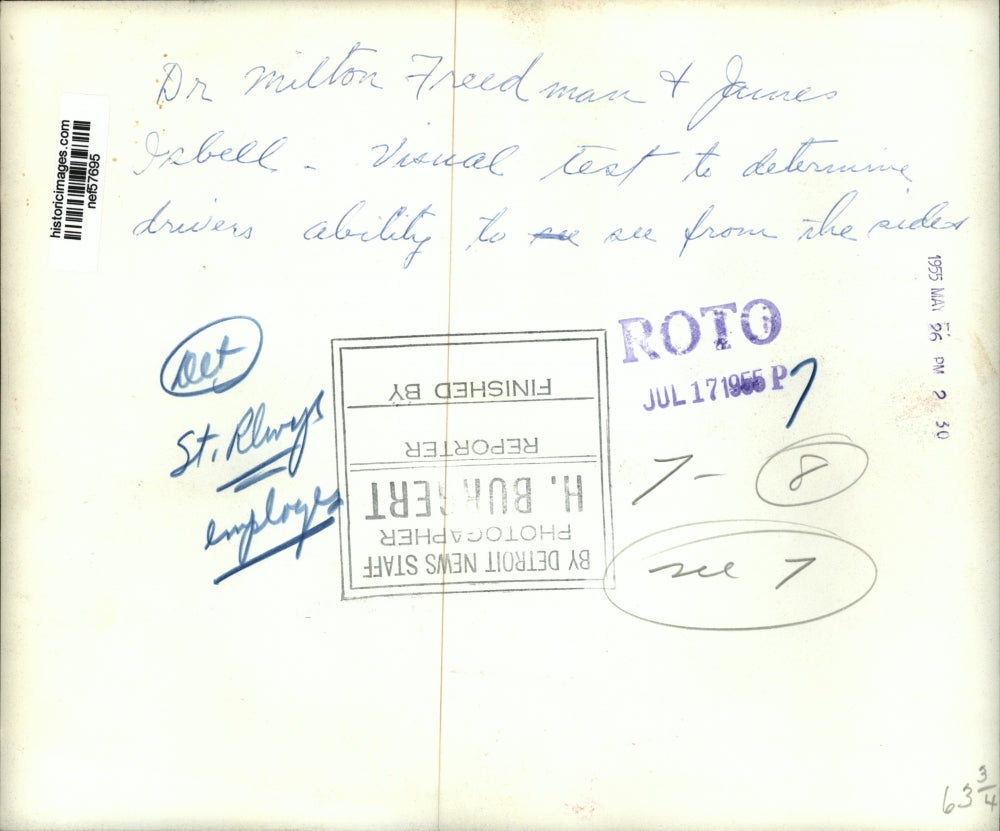 Dr Milton Freedman & James
Isbell - Visual test to determine
drivers ability to see see from the sides
historicimages.com
nef57695
1955 MAY 26 PM 2 30
Det
St. Rlwys
employes
ROTO
JUL 17 1955 P 7
7 - 8
see 7
BY DETROIT NEWS STAFF
PHOTOGRAPHER
REPORTER
FINISHED BY
63 3/4